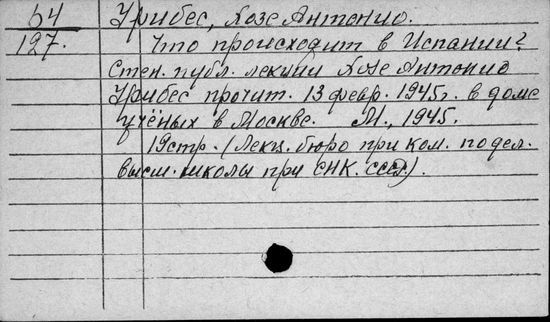 54
127.
Урибес, Хозе Антонио.
Что происходит в Испании?
Стен. публ. лекции Хозе Антонио
Урибес прочит. 13 февр. 1945г. в доме
учёных в Москве. М., 1945.
19стр. (Лекц. бюро при ком. по дел.
высш. школы при СНК. СССР).